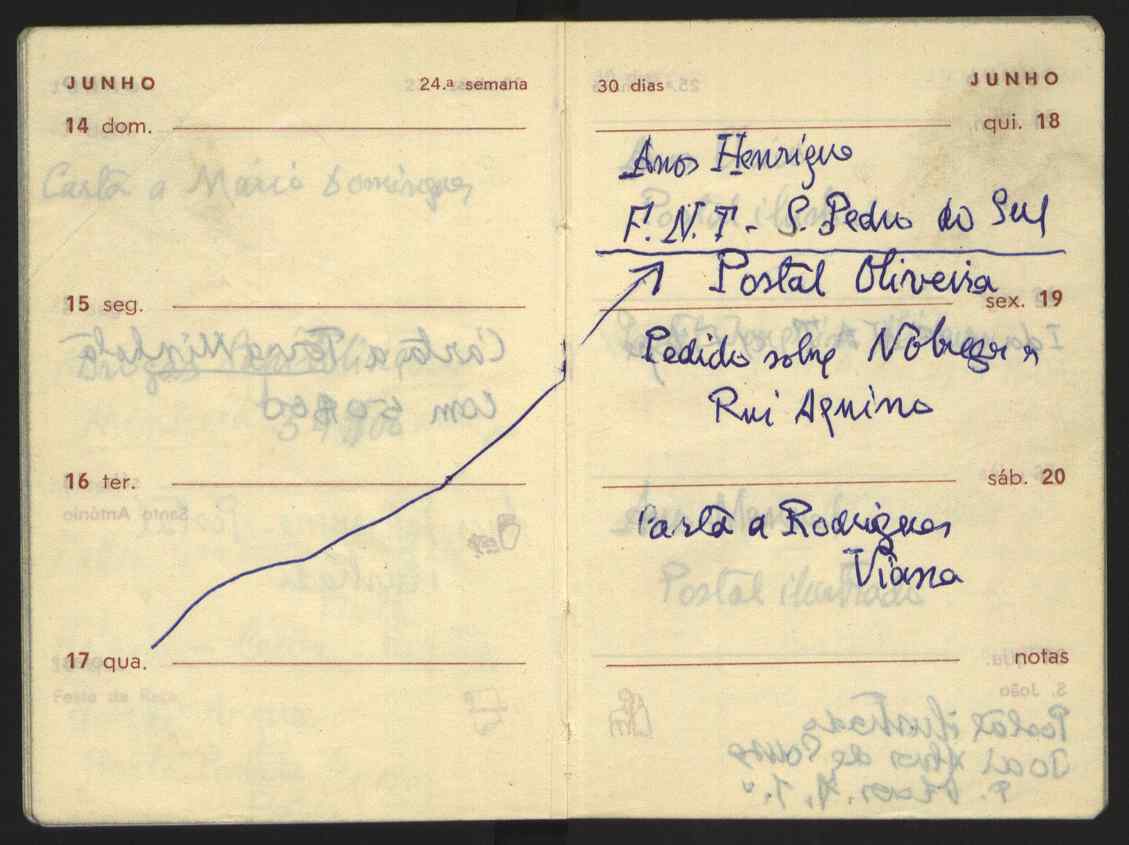 JUNHO 24.ª semana
14 dom.
Carta a Mário Domingues
15 seg.
16 ter.
17 qua.
30 dias JUNHO
qui. 18
Anos Henrique
F.N.T - S. Pedro do Sul
Postal Oliveira
sex. 19
Pedido sobre Nobrega e
Rui Aquino
sáb. 20
Carta a Rodrigues
Viana
Postal ilustrado
notas